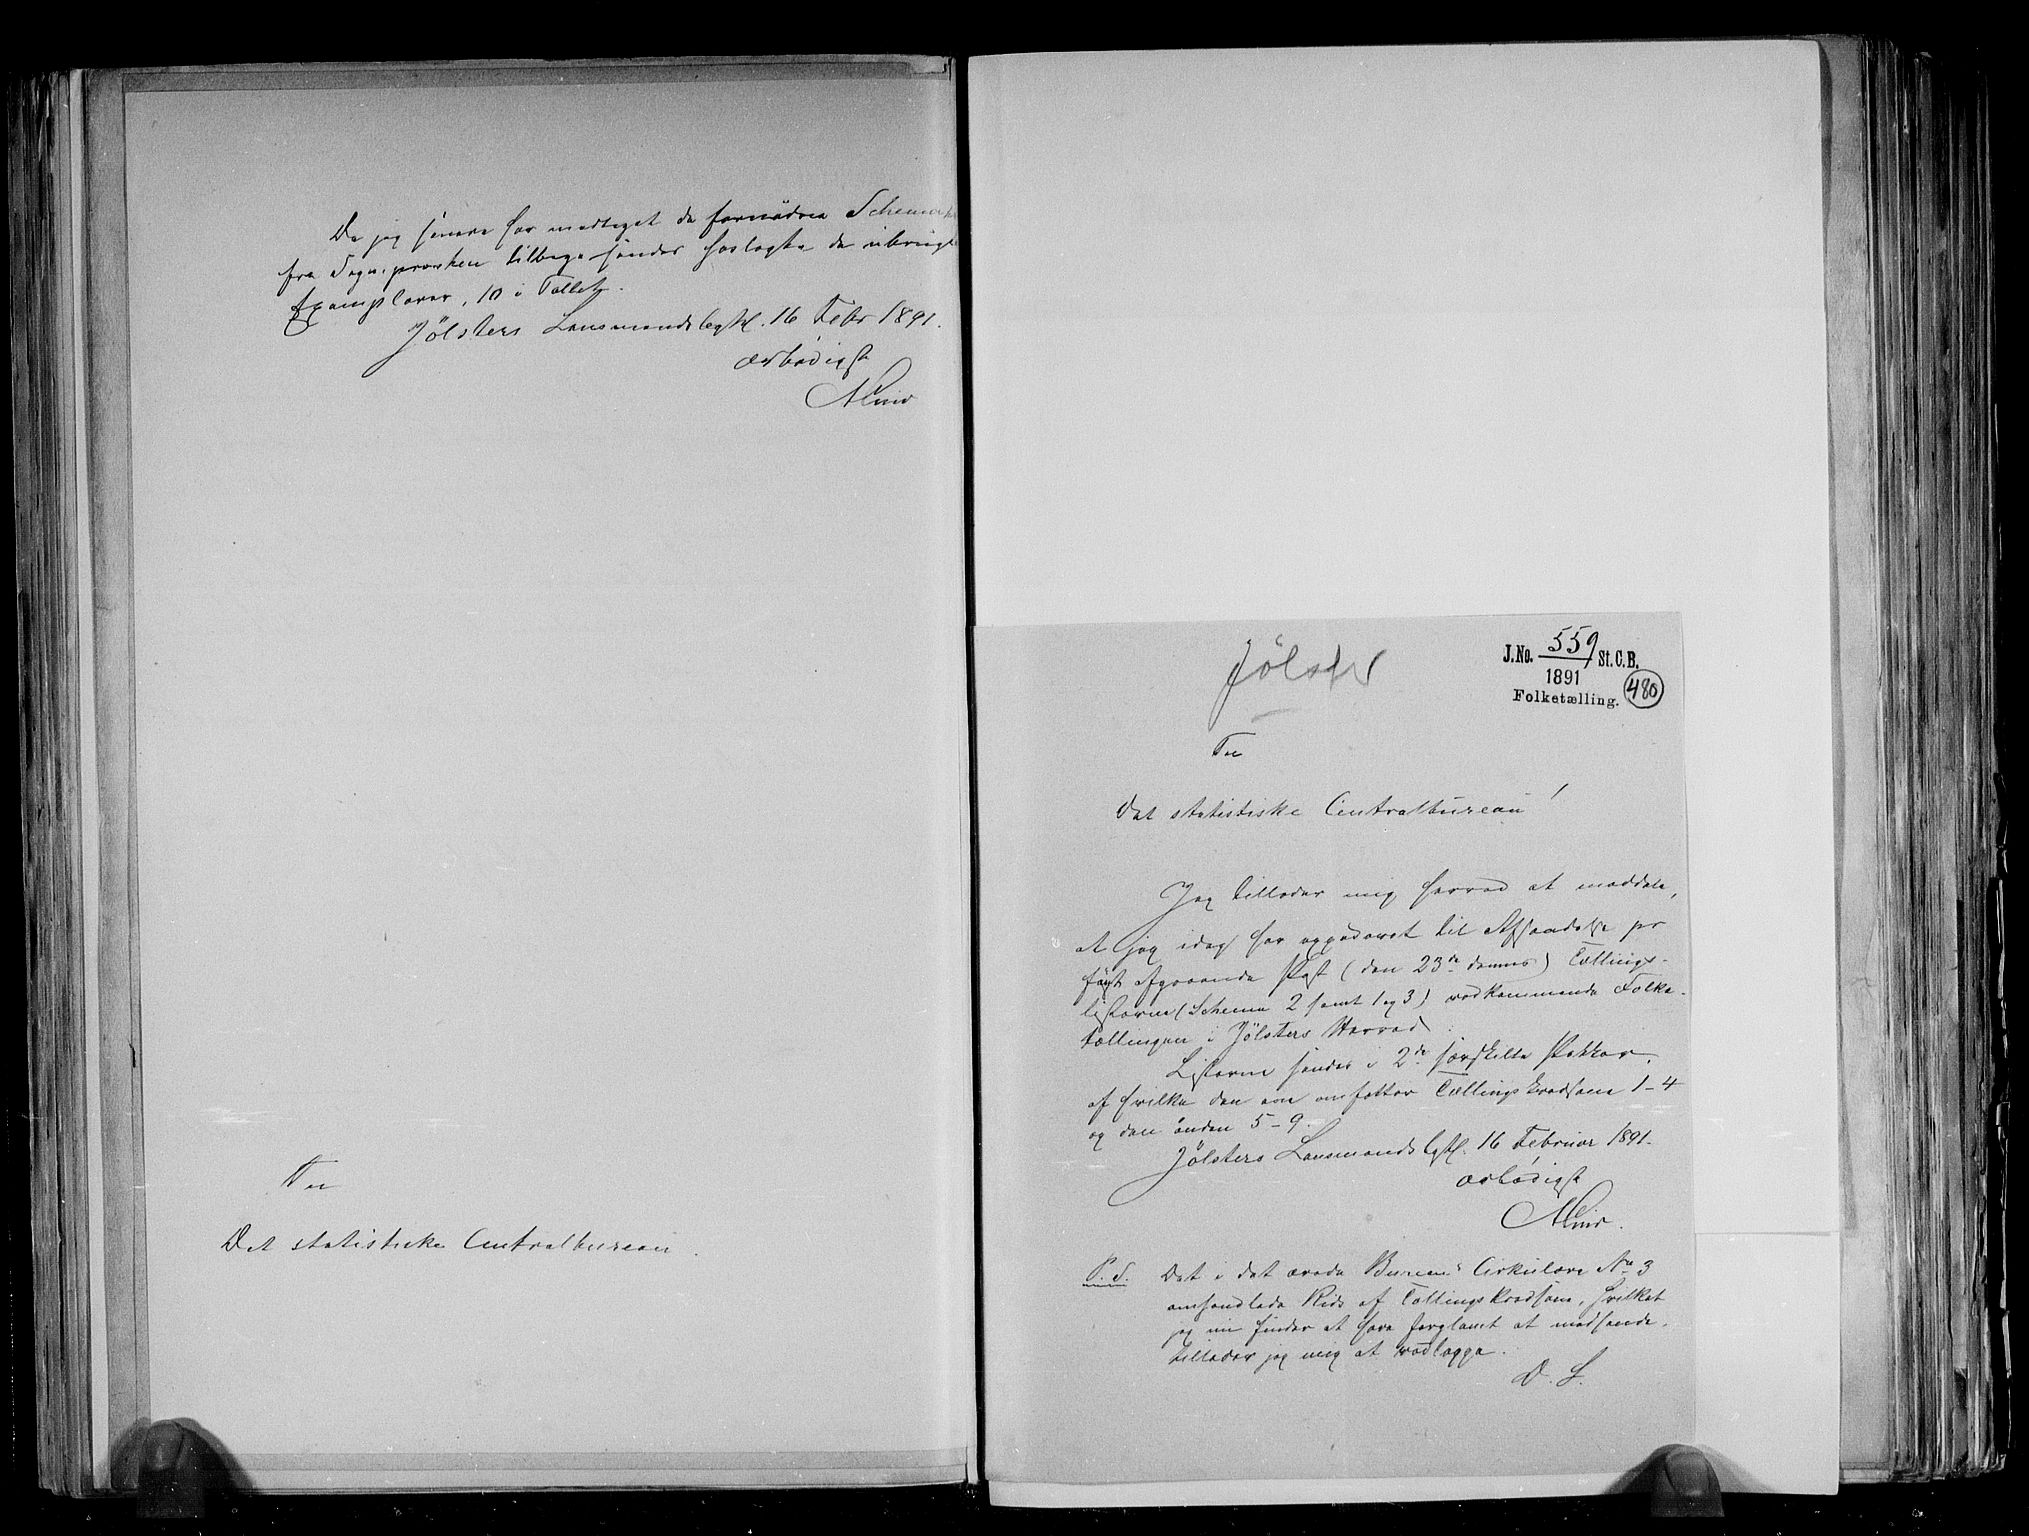 Da jeg senere har modtaget de fornødne Schema
fra Sognepræsten tilbagesendes hoslagte de øbrige
Exemplarer, 10 i Tallet.
Jølsters Lensmandsbestl. 16 Febr 1891.
ærbødigst
Til
Det statistiske Centralbureau.
Jølster
J.No. 559 St.C.B.
1891
Folketælling. 480
Til
Det statistiske Centralbureau!
Jeg tillader mig herved at meddele,
at jeg idag har oppaderet til Afsendelse pr
først afgaaende Post (den 23de dennes) Tællings-
listerne (Schema 2 samt 1 og 3) vedkommende Folke-
tællingen i Jølsters Herred.
Listerne sendes i 2de særskilte Pakker,
af hvilke den ene omfatter Tællingskredsene 1-4
og den anden 5-9.
Jølsters Lensmandsbestl. 16 Februar 1891.
ærbødigst
P.S. Det i det ærede Bureaus Cirkulære No 3
omhandlede Rids af Tællingskredsene, hvilket
jeg nu finder at have forglemt at medsende,
tillader jeg mig at vedlægge.
D. S.